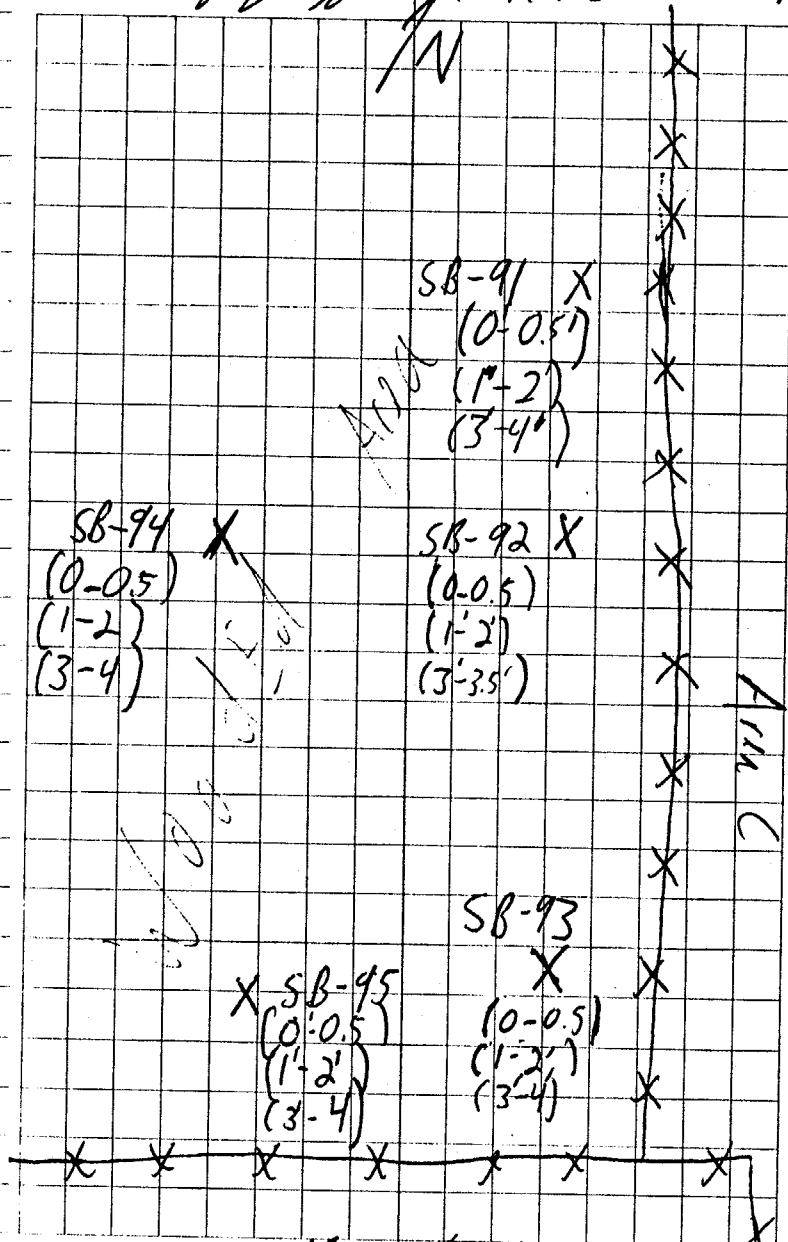 N
SB-91 X
(0'-0.5')
(1'-2')
(3'-4')
Area
SB-94 X
(0-0.5)
(1-2)
(3-4)
SB-92 X
(0-0.5)
(1'-2')
(3'-3.5')
Wooded
Area C
SB-93
X
(0-0.5)
(1'-2')
(3'-4)
X SB-95
(0'-0.5')
(1'-2')
(3'-4)